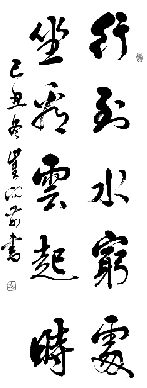 行到水窮處
坐看雲起時
己丑冬
書